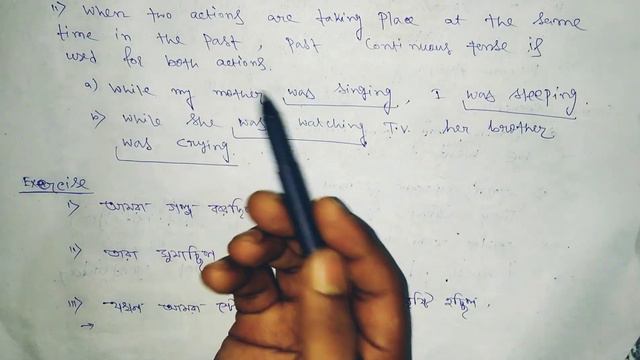 ii) When two actions are taking place at the same
time in the past, past continuous tense is
used for both actions.
a) while my mother was singing, I was sleeping.
b) while she was watching T.V. her brother
was crying.
Exercise
i) আমরা গল্প
ii) তারা ঘুমাচ্ছিল
iii) যখন আমরা হচ্ছিল.
→